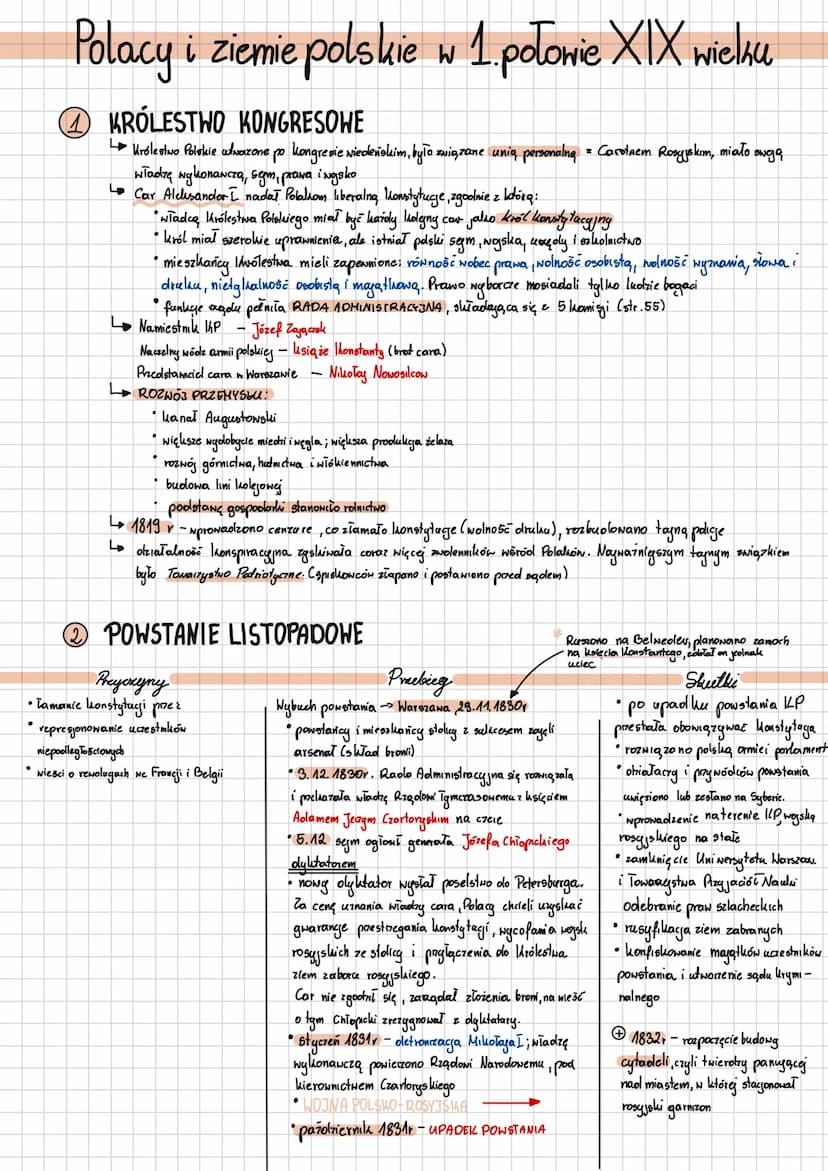 Polacy i ziemie polskie w 1. połowie XIX wieku
1 KRÓLESTWO KONGRESOWE
↳ Królestwo Polskie utworzone po kongresie wiedeńskim, było związane unią personalną z Caratem Rosyjskim, miało swoją
władzę wykonawczą, sejm, prawa i wojsko
↳ Car Aleksander I nadał Polakom liberalną konstytucję, zgodnie z którą:
• władcą Królestwa Polskiego miał być każdy kolejny car jako król konstytucyjny
• król miał szerokie uprawnienia, ale istniał polski sejm, wojsko, urzędy i szkolnictwo
• mieszkańcy Królestwa mieli zapewnione: równość wobec prawa, wolność osobistą, wolność wyznania, słowa i
druku, nietykalność osobistą i majątkową. Prawo wyborcze posiadali tylko ludzie bogaci
• funkcje rządu pełniła RADA ADMINISTRACYJNA, składająca się z 5 komisji (str.55)
↳ Namiestnik KP – Józef Zajączek
Naczelny wódz armii polskiej – książe Konstanty (brat cara)
Przedstawiciel cara w Warszawie – Nikołaj Nowosilcow
↳ ROZWÓJ PRZEMYSŁU:
• kanał Augustowski
• większe wydobycie miedzi i węgla; większa produkcja żelaza
• rozwój górnictwa, hutnictwa i włókiennictwa
• budowa lini kolejowej
• podstawę gospodarki stanowiło rolnictwo
↳ 1819 r – wprowadzono cenzure, co złamało konstytucje (wolność druku), rozbudowano tajną policje
↳ działalność konspiracyjna zyskiwała coraz więcej zwolenników wśród Polaków. Najważniejszym tajnym związkiem
było Towarzystwo Patriotyczne. (spiskowców złapano i postawiono przed sądem)
2 POWSTANIE LISTOPADOWE
* Ruszono na Belweder, planowano zamach
na księcia Konstantego, zdołał on jednak
uciec
Przyczyny
• łamanie konstytucji przez
• represjonowanie uczestników
niepodległościowych
• wieści o rewolucjach we Francji i Belgii
Przebieg
Wybuch powstania → Warszawa, 29.11.1830r
• powstańcy i mieszkańcy stolicy z sukcesem zajęli
arsenał (skład broni)
• 3.12.1830r. Rada Administracyjna się rozwiązała
i przekazała władzę Rządowi Tymczasowemu z księciem
Adamem Jerzym Czartoryskim na czele
• 5.12 sejm ogłosił generała Józefa Chłopickiego
dyktatorem
• nowy dyktator wysłał poselstwo do Petersburga.
Za cenę uznania władzy cara, Polacy chcieli uzyskać
gwarancje przestrzegania konstytucji, wycofania wojsk
rosyjskich ze stolicy i przyłączenia do Królestwa
ziem zaboru rosyjskiego.
Car nie zgodził się, zażądał złożenia broni, na wieść
o tym Chłopicki zrezygnował z dyktatury.
• Styczeń 1831r – detronizacja Mikołaja I; władzę
wykonawczą powierzono Rządowi Narodowemu, pod
kierownictwem Czartoryskiego
• WOJNA POLSKO-ROSYJSKA →
• październik 1831r – UPADEK POWSTANIA
Skutki
• po upadku powstania KP
przestała obowiązywać konstytucja
• rozwiązano polską armie i parlament
• działaczy i przywódców powstania
uwięziono lub zesłano na Syberie.
• wprowadzenie na terenie KP, wojska
rosyjskiego na stałe
• zamknięcie Uniwersytetu Warszaw.
i Towarzystwa Przyjaciół Nauki
odebranie praw szlacheckich
• rusyfikacja ziem zabranych
• konfiskowanie majątków uczestników
powstania i utworzenie sądu krymi-
nalnego
⊕ 1832r – rozpoczęcie budowy
cytadeli, czyli twierdzy panującej
nad miastem, w której stacjonował
rosyjski garnizon